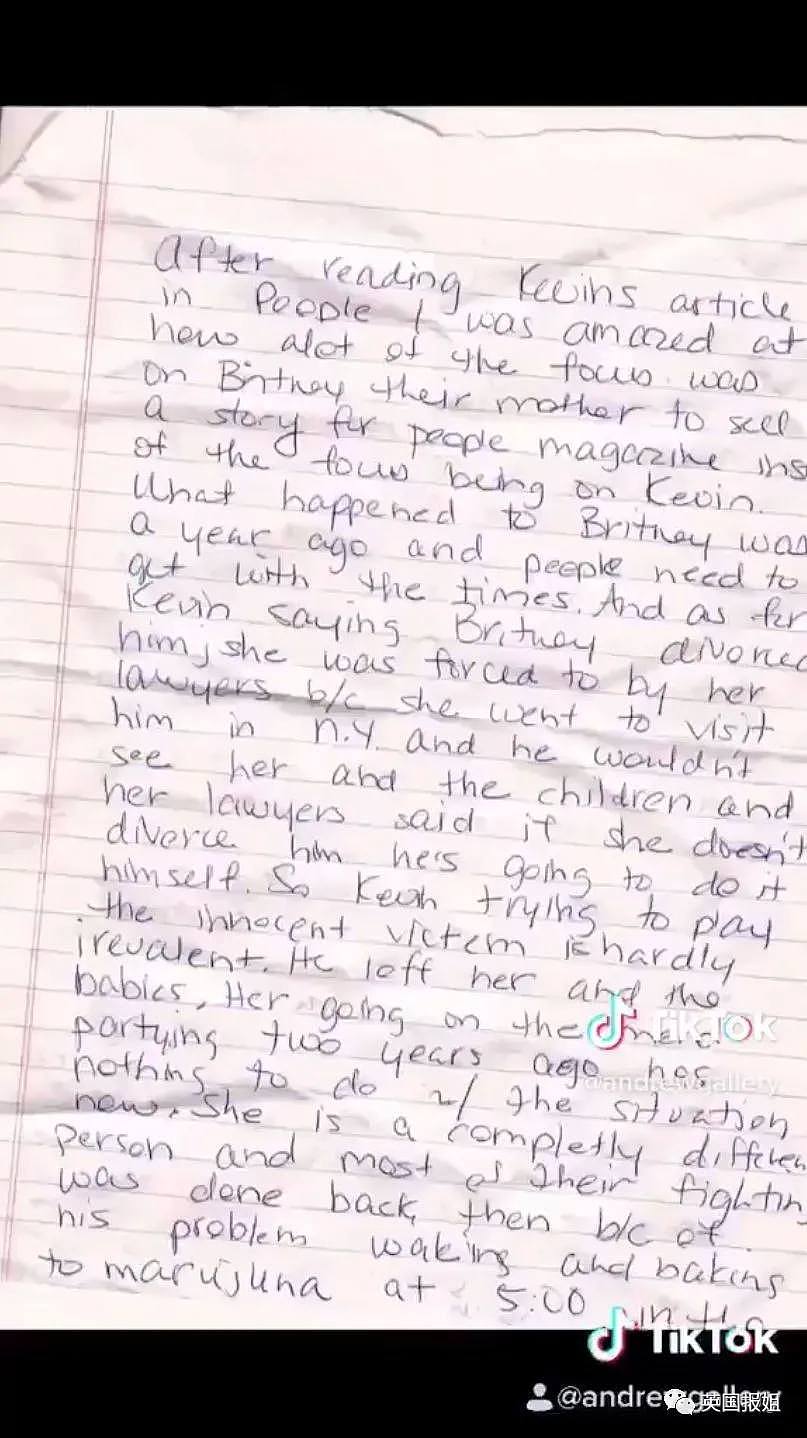 After reading Kevins article
in People I was amazed at
how alot of the focus was
on Britney their mother to sell
a story for people magazine ins
of the focus being on Kevin.
What happened to Britney was
a year ago and people need to
get with the times. And as for
Kevin saying Britney divorced
him; she was forced to by her
lawyers b/c she went to visit
him in N.Y. and he wouldn't
see her and the children and
her lawyers said if she doesn't
divorce him he's going to do it
himself. So Kevin trying to play
the innocent victem is hardly
irevalent. He left her and the
babies. Her going on the
partying two years ago has
nothing to do w/ the situation
now. She is a completly differen
person and most of their fightin
was done back then b/c of
his problem waking and baking
to marujuna at 5:00 in the
TikTok
@andrewgallery
TikTok
@andrewgallery
英国报姐